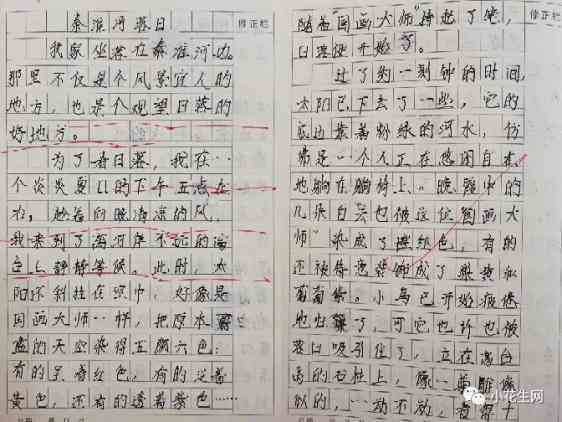 秦淮河落日
修正栏
我家坐落在秦淮河边。
那里不仅是个风景宜人的
地方，也是个观望日落的
好地方。
为了看日落，我在一
个炎炎夏日的下午五点左
右，吹着向晚清凉的风，
我来到了离河岸不远的
台上静静等候。此时，太
阳还斜挂在空中，好像是
国画大师一样，把原本
蓝的天空染得五颜六色：
有的呈着红色，有的泛着
黄色，还有的透着紫色……
随着“国画大师”持起了笔，
修正栏
日落便开始了。
过了约一刻钟的时间，
太阳已下去了一些，它的
底边紧着粉绿的河水，仿
佛是一个人正在悠闲自在
地躺在躺椅上。晚霞中的
几朵白云也被这位“国画大
师”染成了橙红色，有的
还被
成了
葡萄紫。小鸟已开始疲倦
地归巢了，可它也许也被
落日吸引住了，立在高台
的石柱上，像一尊雕像
似的，一动不动，
小花生网